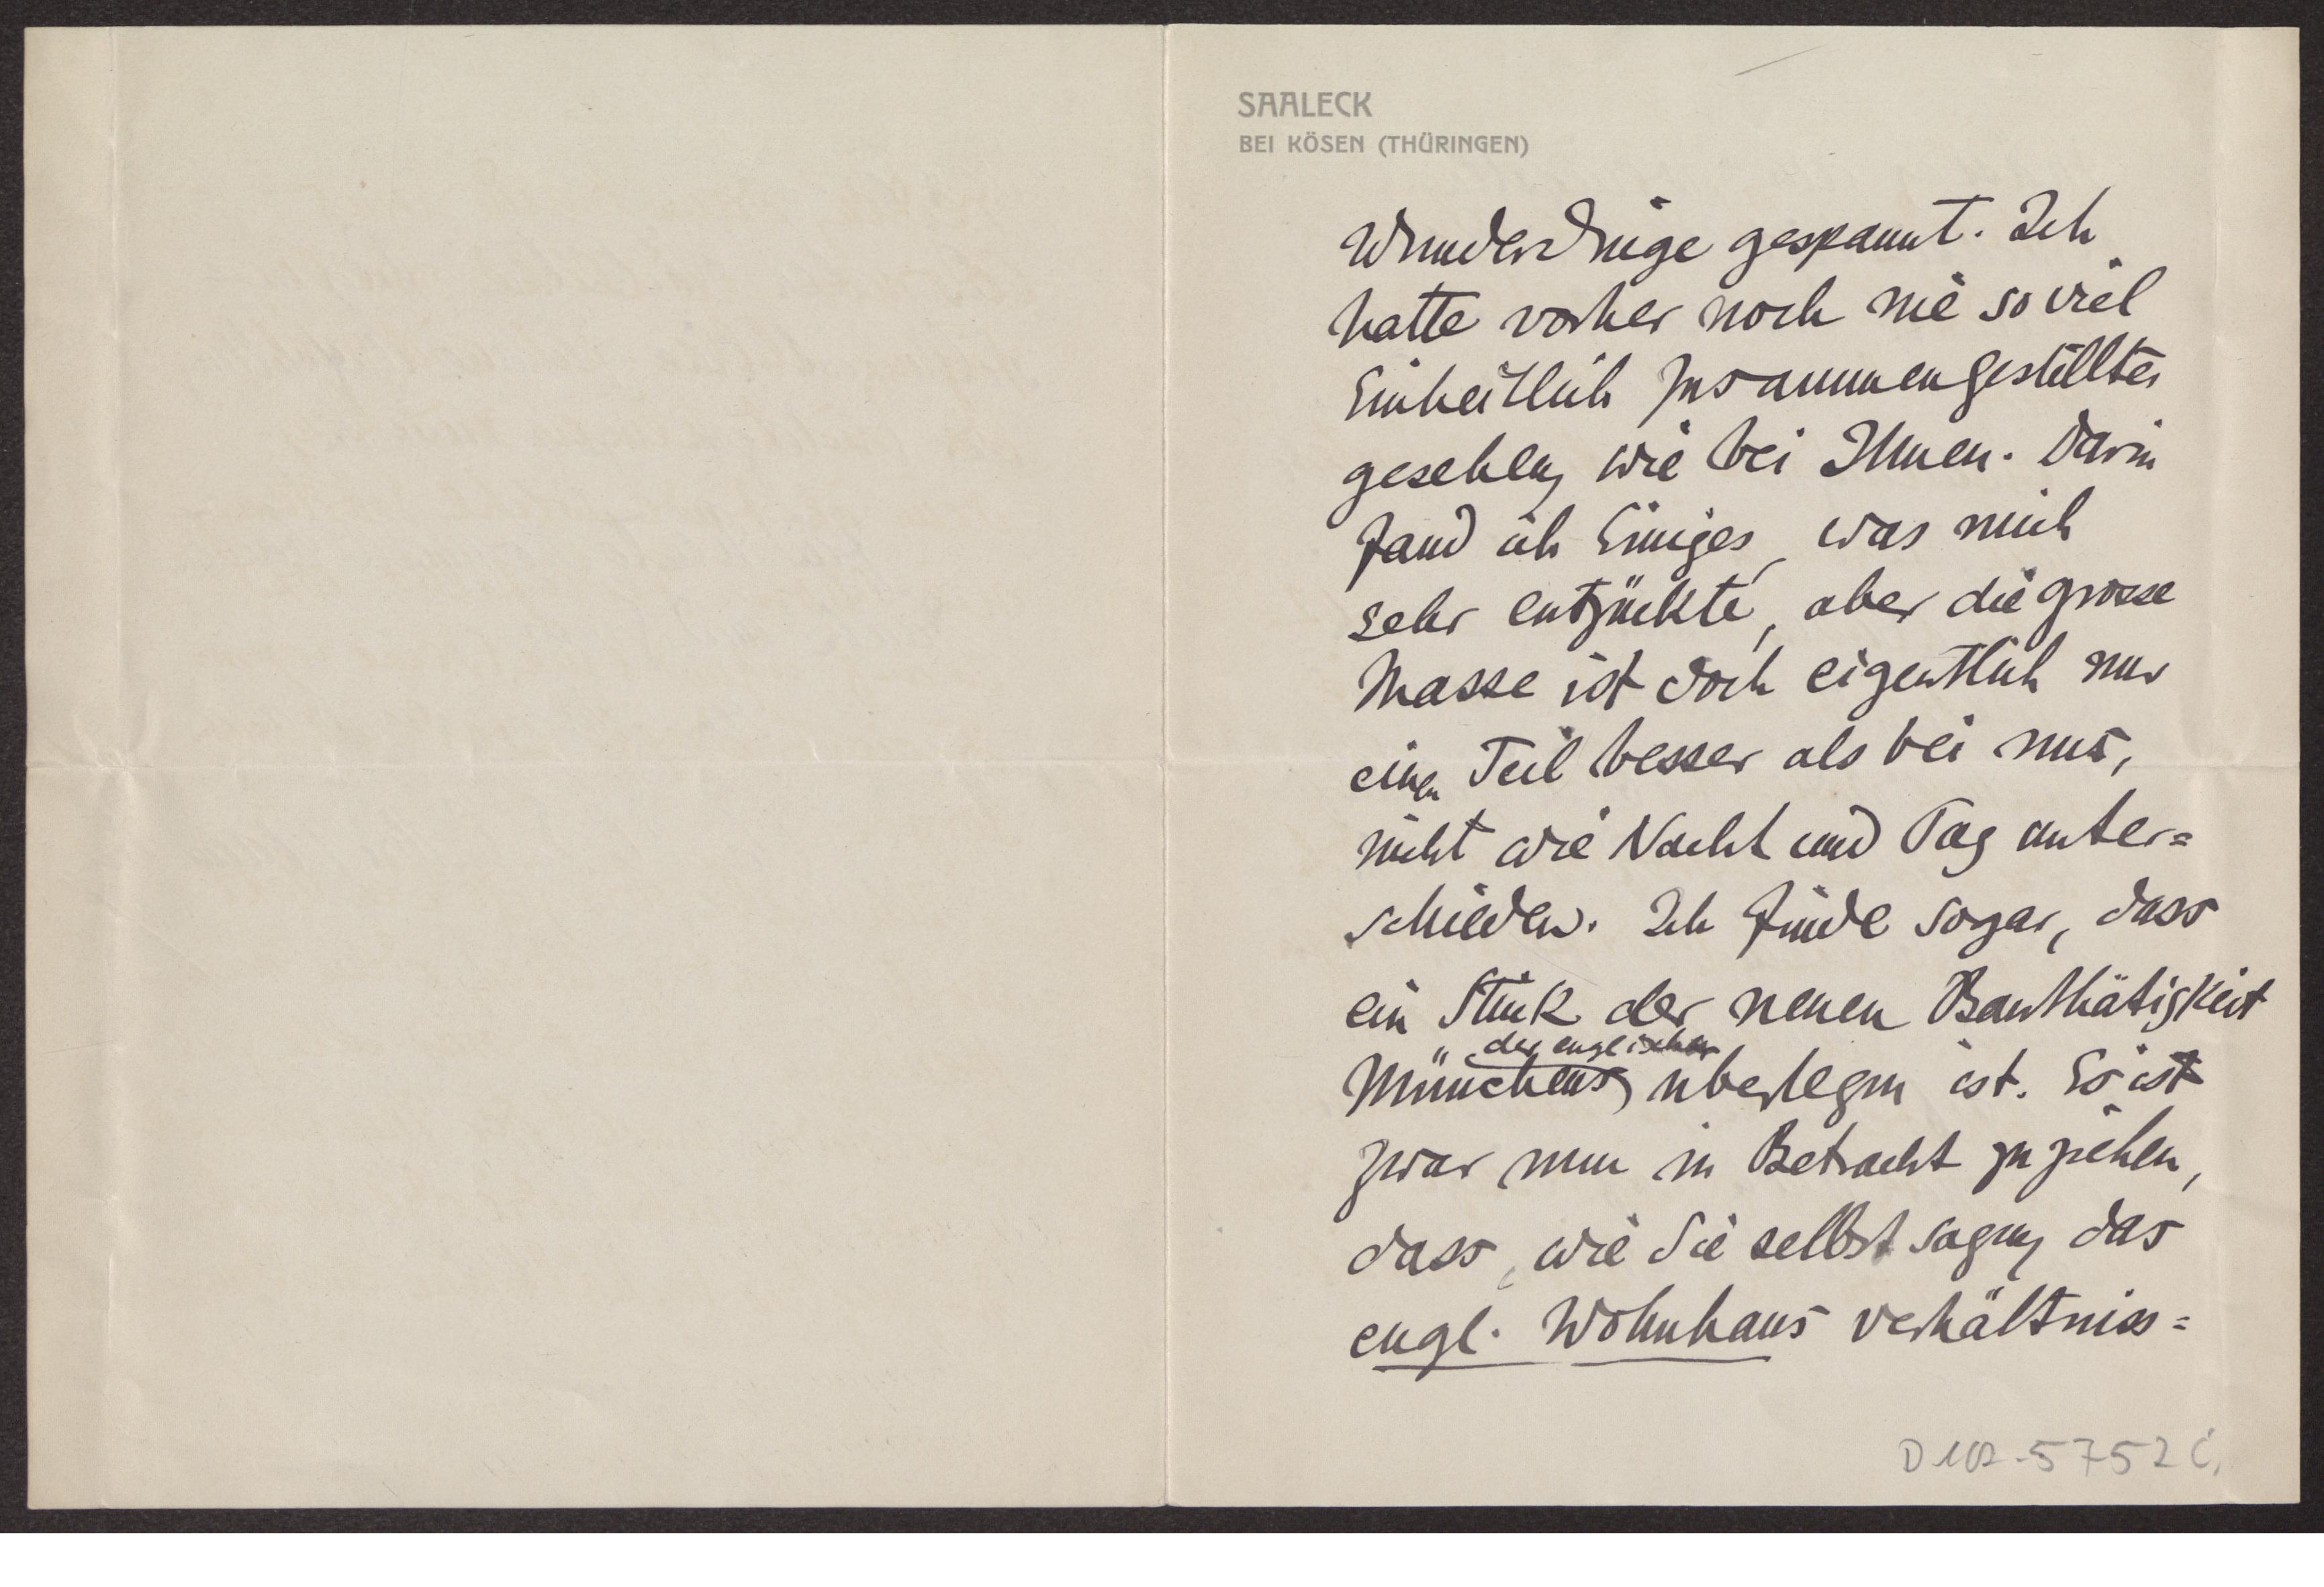 SAALECK
BEI KÖSEN (THÜRINGEN)
Wunderdinge gespannt. Ich
hatte vorher noch nie so viel
Einheitlich Zusammengestelltes
gesehen, wie bei Ihnen. Darin
fand ich Einiges, was mich
sehr entzückte, aber die grosse
Masse ist doch eigentlich nur
einen Teil besser als bei uns,
nicht wie Nacht und Tag unter=
schieden. Ich finde sogar, dass
ein Stück der neuen Bauthätigkeit
der englischen
Münchens überlegen ist. Es ist
zwar nun in Betracht zu ziehen,
dass, wie Sie selbst sagen, das
engl. Wohnhaus verhältniss=
D 102-5752 C,